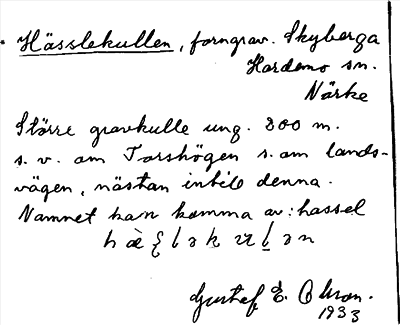 Hässlekullen, forngrav. Skyberga
Hardemo sn.
Närke
Större gravkulle ung. 800 m.
s. v. om Torshögen s. om lands-
vägen, nästan intill denna.
Namnet kan komma av: hassel
Gustaf E. Olsson.
1933